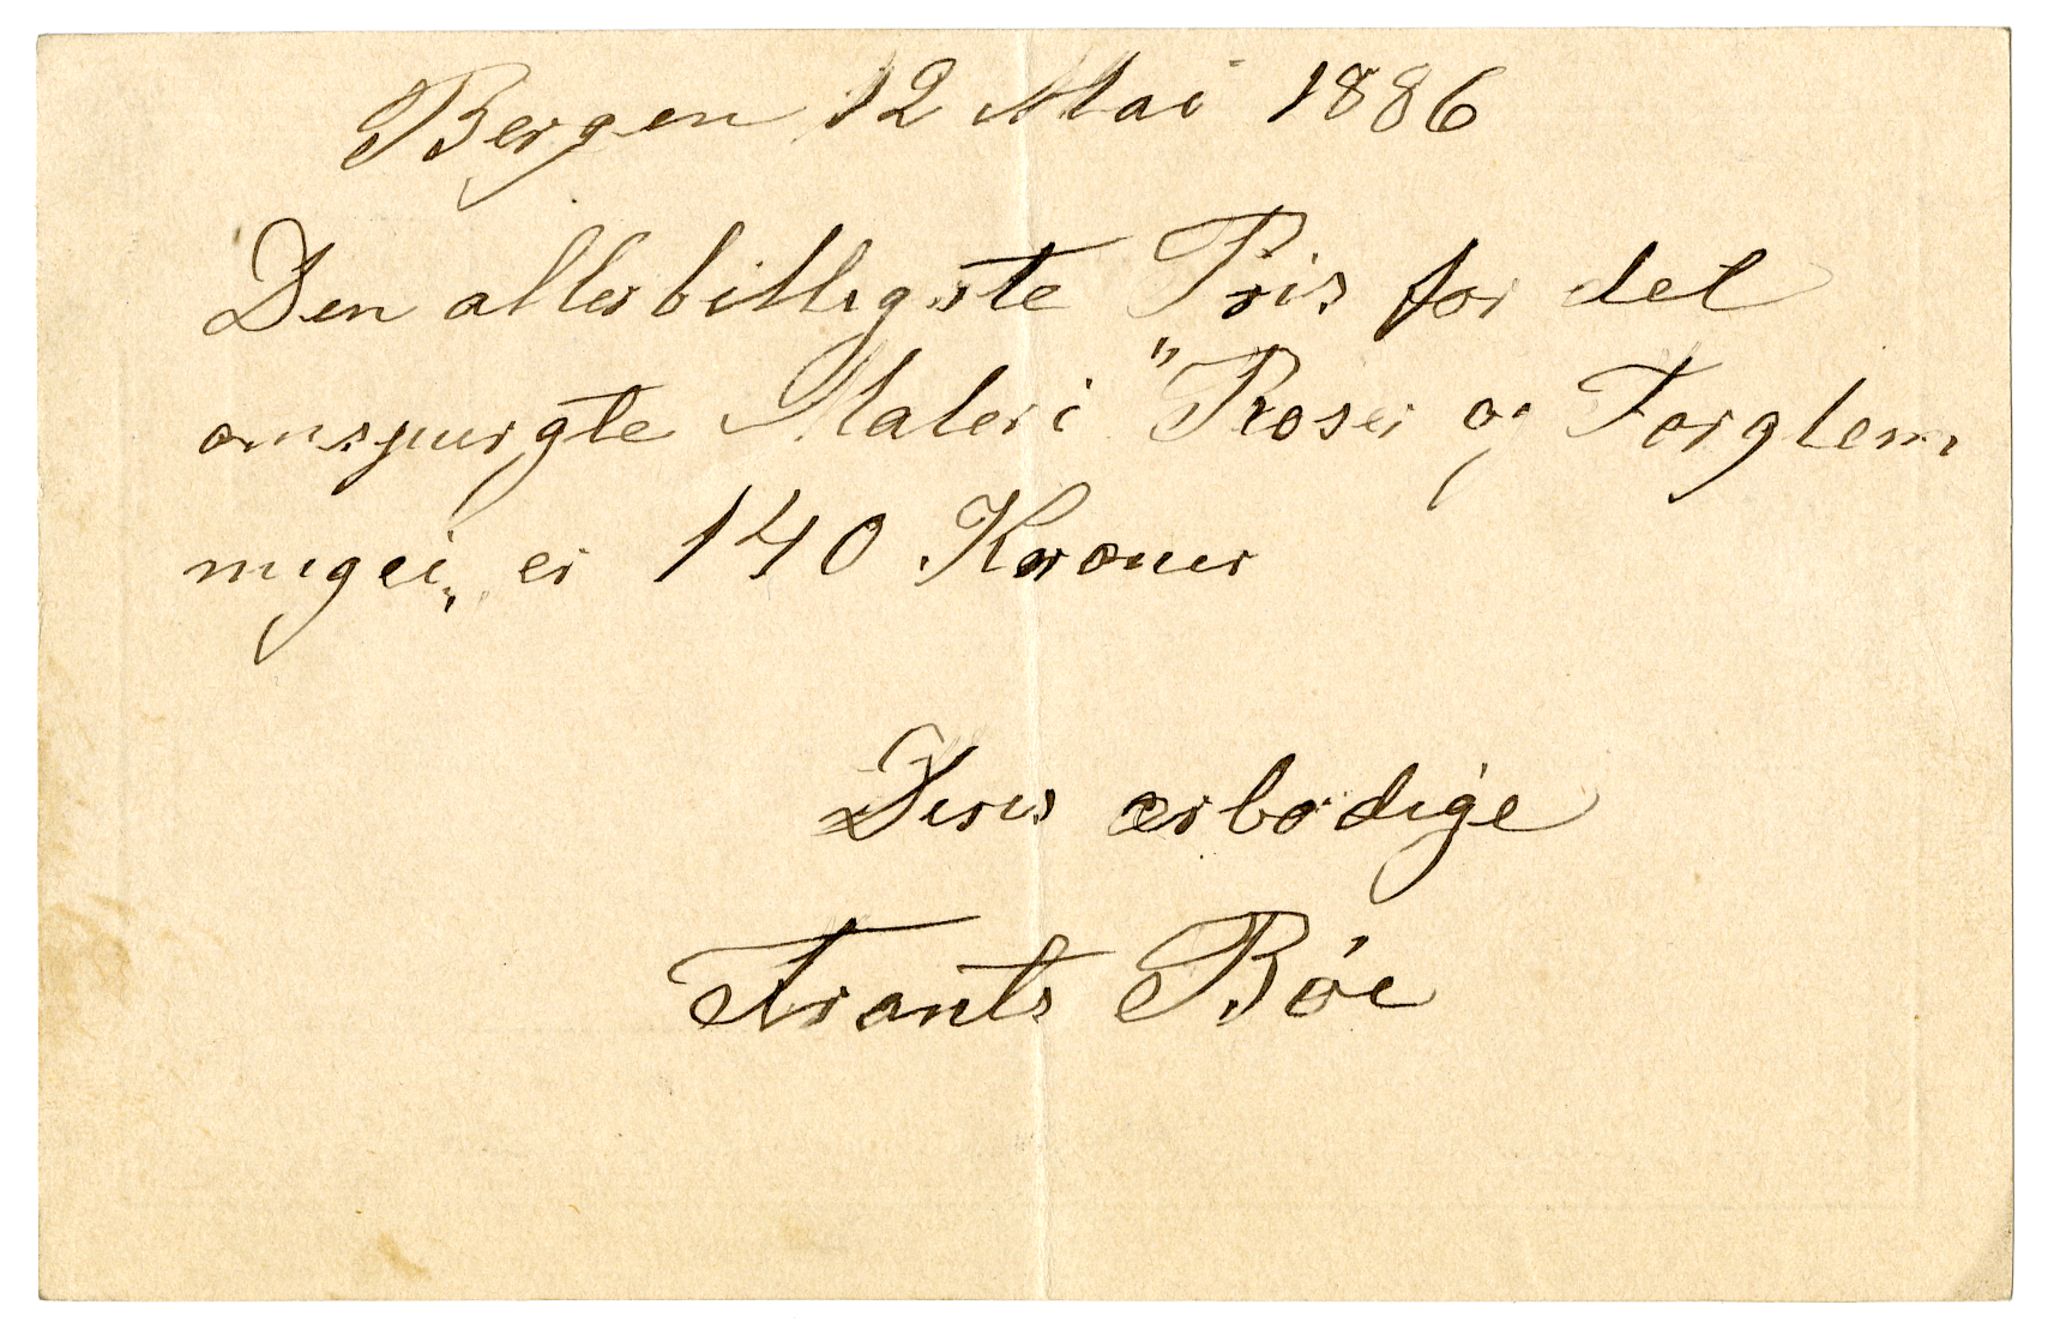 Bergen 12 Mai 1886
Den allerbilligste Pris for det
omspurgte Maleri "Roser og Forglem
migei„ er 140 Kroner
Deres ærbødige
Frants Bøe